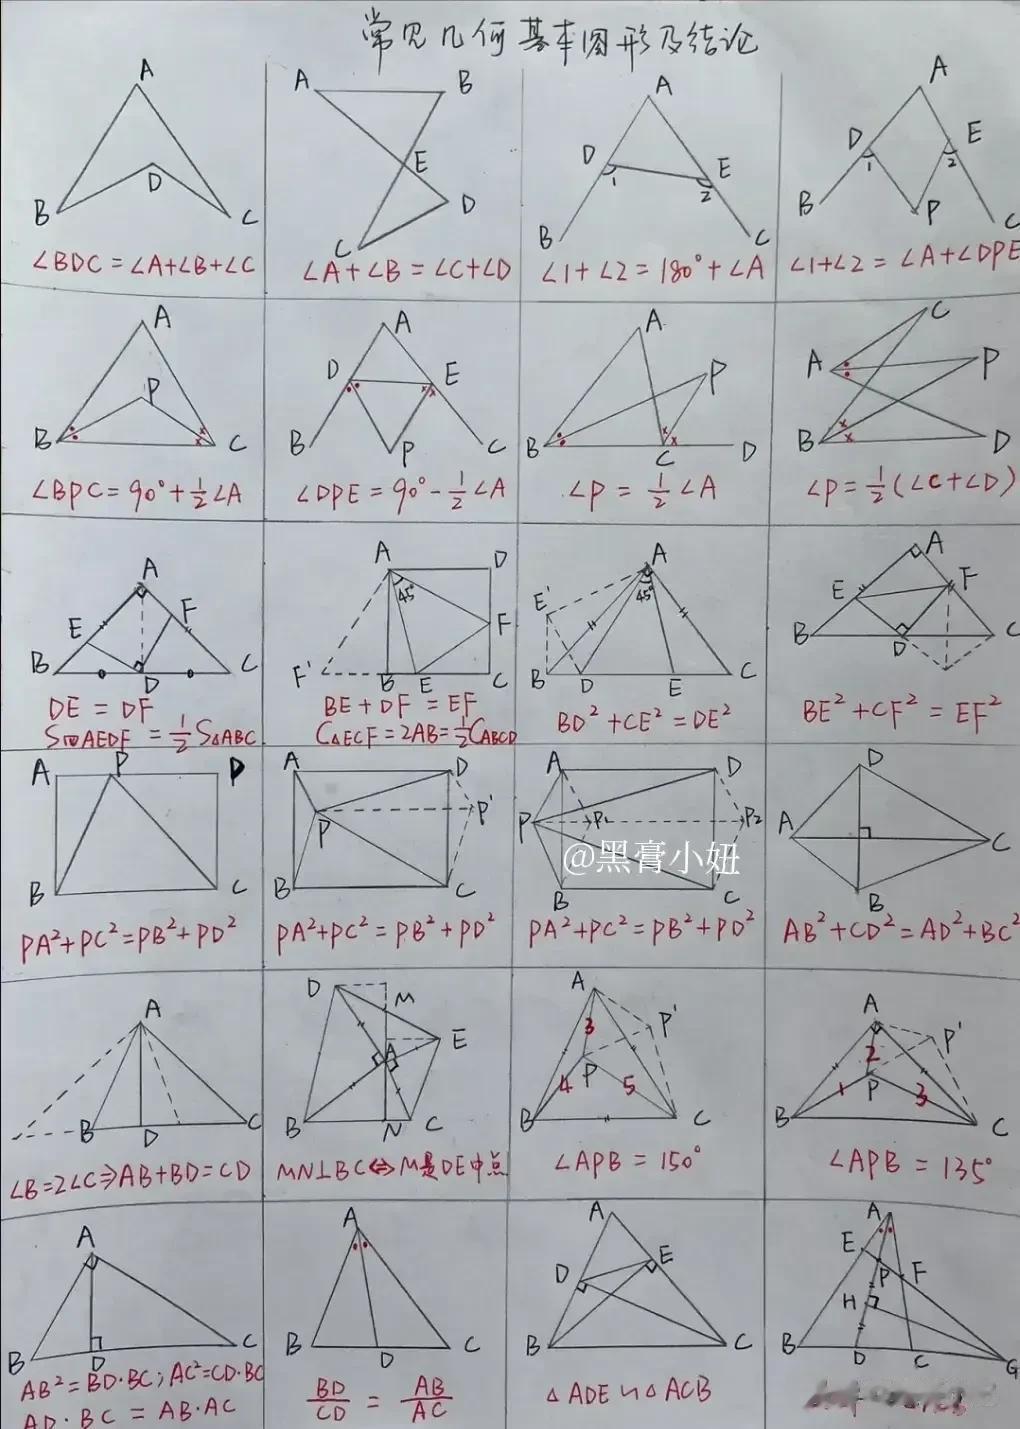 常见几何基本图形及结论
A
B
D
C
∠BDC=∠A+∠B+∠C
A
B
E
D
C
∠A+∠B=∠C+∠D
A
D
E
1
2
B
C
∠1+∠2=180°+∠A
A
D
E
1
2
B
P
C
∠1+∠2=∠A+∠DPE
A
P
B
C
∠BPC=90°+1/2∠A
A
D
E
B
P
C
∠DPE=90°-1/2∠A
A
P
B
C
D
∠P=1/2∠A
C
A
P
B
D
∠P=1/2(∠C+∠D)
A
E
F
B
D
C
DE=DF
S四AEDF=1/2S△ABC
A
D
45°
F
F'
B
E
C
BE+DF=EF
C△ECF=2AB=1/2CABCD
A
E'
45°
B
D
E
C
BD²+CE²=DE²
A
E
F
B
D
C
BE²+CF²=EF²
A
P
D
B
C
PA²+PC²=PB²+PD²
A
D
P
P'
B
C
PA²+PC²=PB²+PD²
A
D
P
P₁
P₂
@黑膏小妞
B
C
PA²+PC²=PB²+PD²
D
A
C
B
AB²+CD²=AD²+BC²
A
B
D
C
∠B=2∠C⇒AB+BD=CD
D
M
A
E
B
N
C
MN⊥BC⇔M是DE中点
A
3
P'
P
4
5
B
C
∠APB=150°
A
2
P'
1
P
3
B
C
∠APB=135°
A
B
D
C
AB²=BD·BC;AC²=CD·BC
AD·BC=AB·AC
A
B
D
C
BD/CD=AB/AC
A
D
E
B
C
△ADE∽△ACB
A
E
P
F
H
B
D
C
G